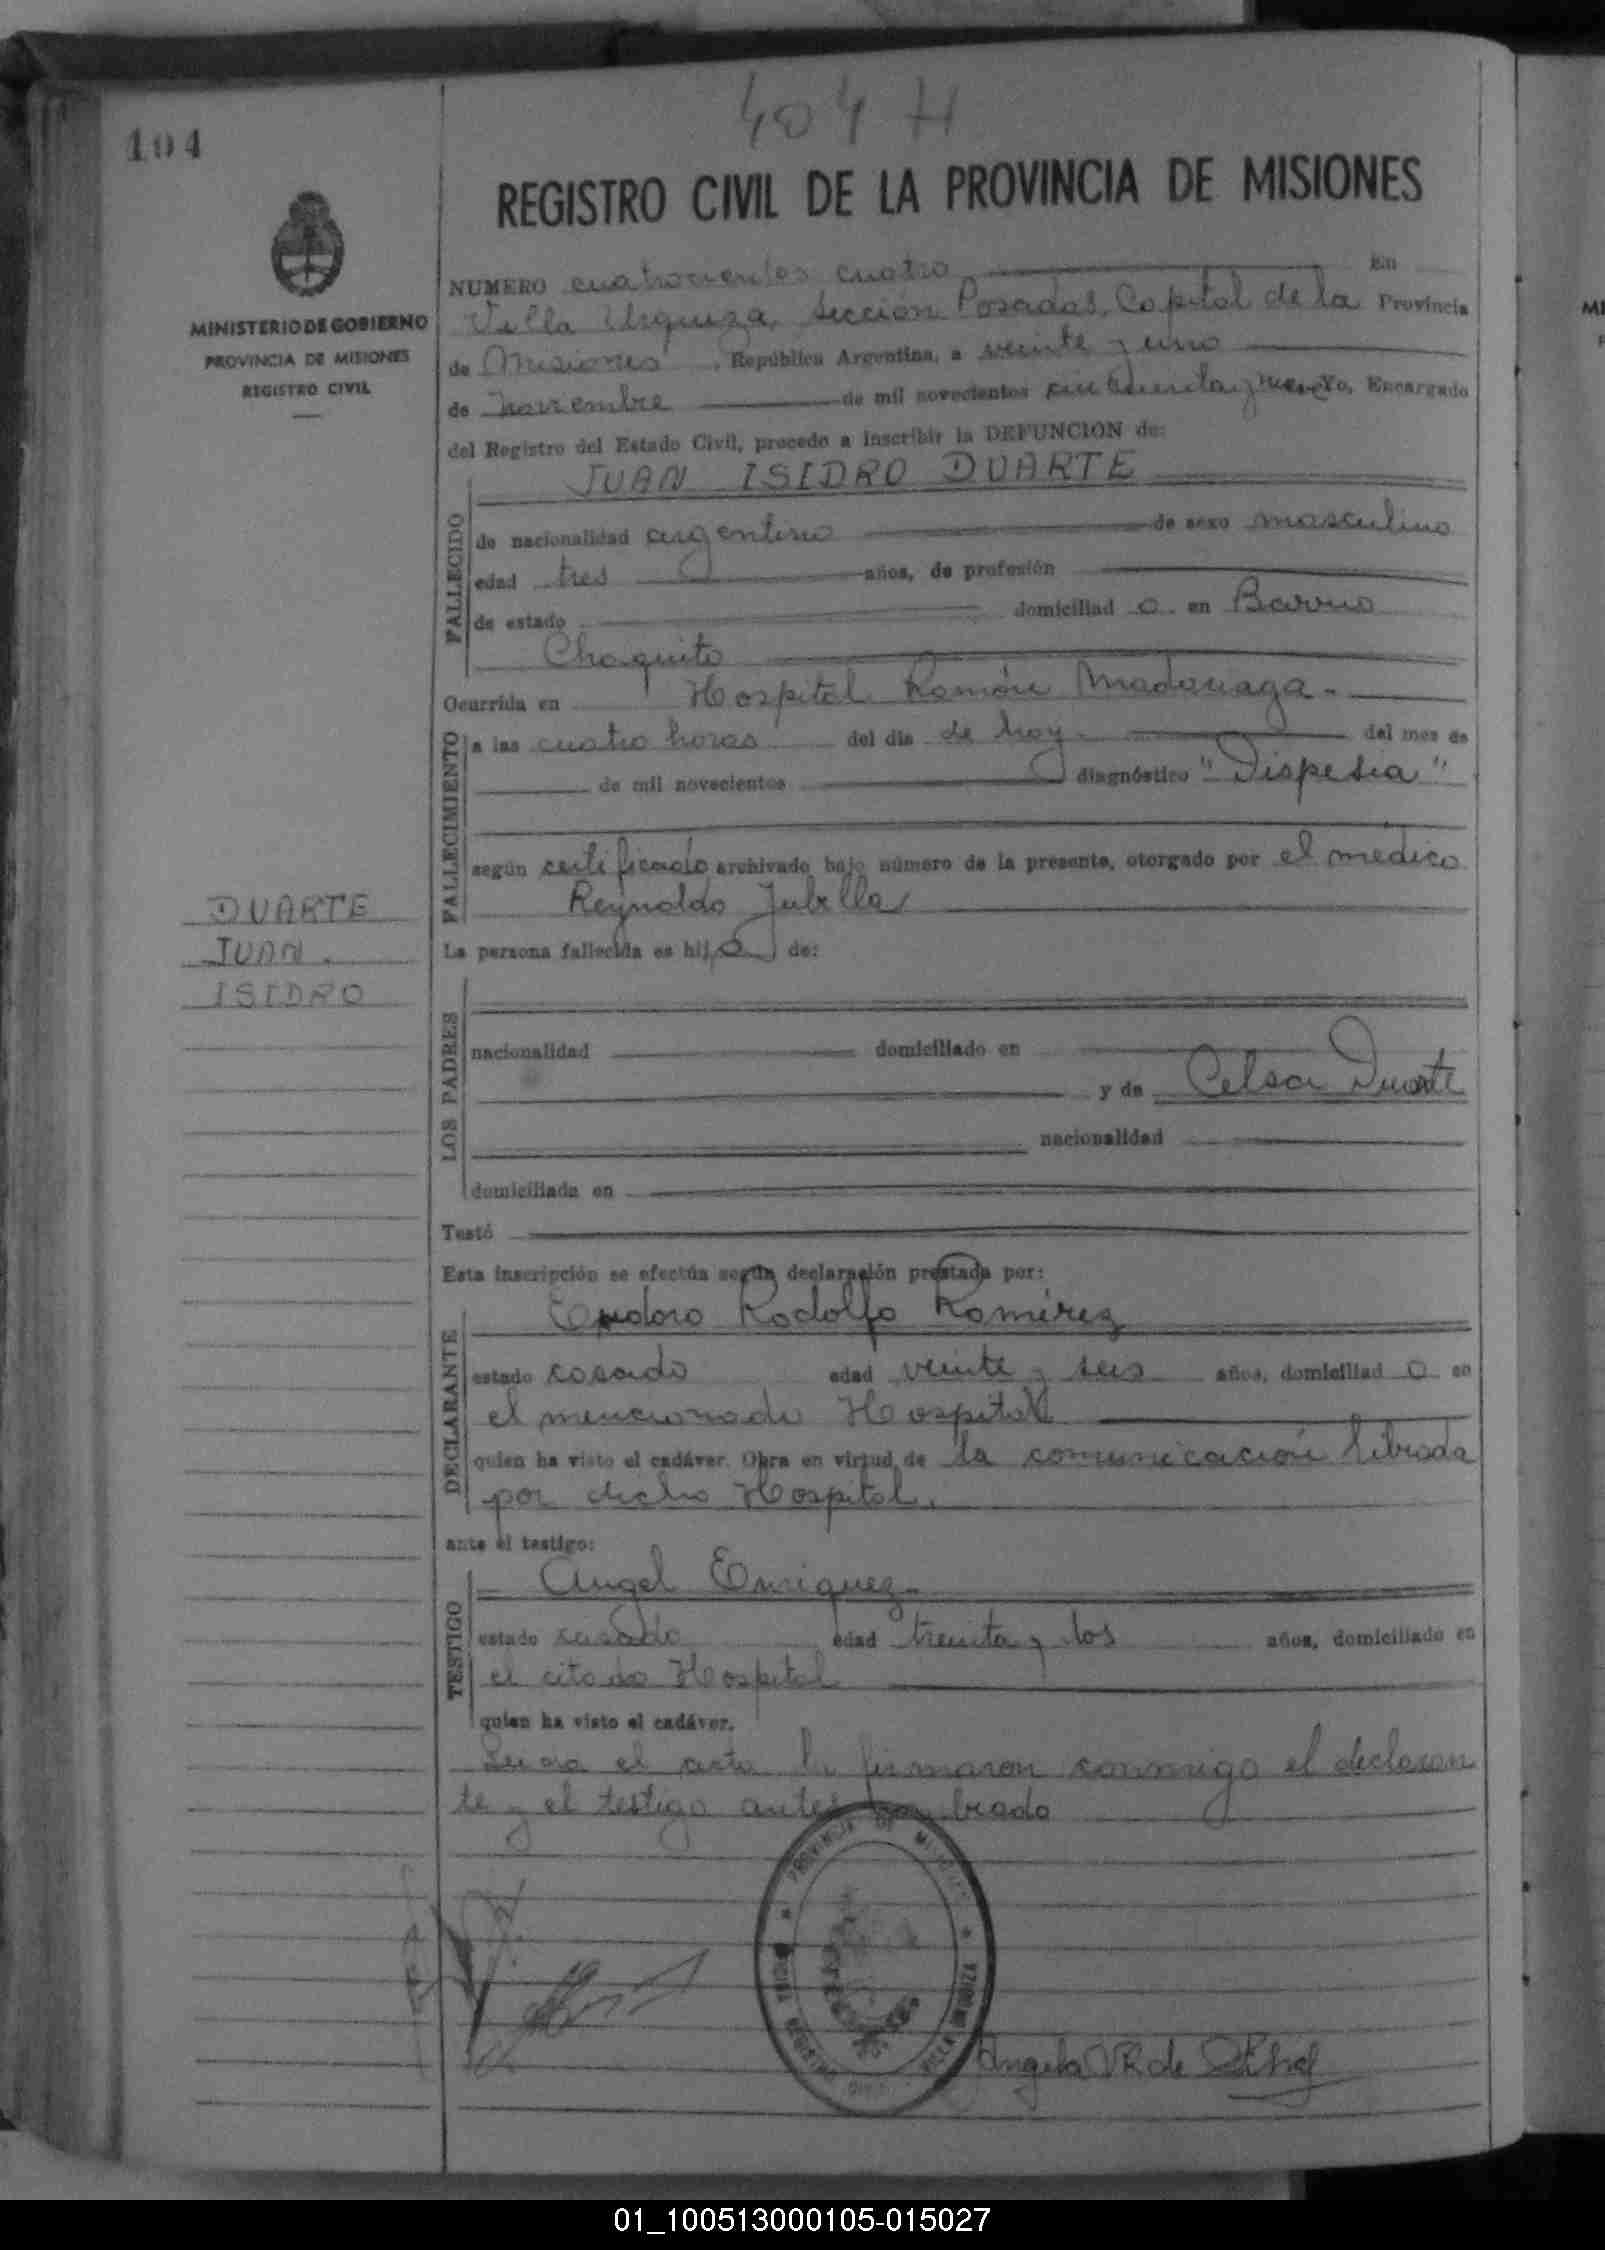 404 H
104
REGISTRO CIVIL DE LA PROVINCIA DE MISIONES
MINISTERIO DE GOBIERNO
PROVINCIA DE MISIONES
REGISTRO CIVIL
NUMERO cuatrocientos cuatro En
Villa Urquiza, sección Posadas, Capital de la Provincia
de Misiones, República Argentina, a veinte y uno
de noviembre de mil novecientos cincuenta y nueve Yo, Encargado
del Registro del Estado Civil, procedo a inscribir la DEFUNCION de:
JUAN ISIDRO DUARTE
FALLECIDO
de nacionalidad argentino de sexo masculino
edad tres años, de profesión
de estado domiciliad o en Barrio
Chaquito
Ocurrida en Hospital Ramón Madariaga.
FALLECIMIENTO
a las cuatro horas del día de hoy. del mes de
de mil novecientos diagnóstico "Dispesia"
según certificado archivado bajo número de la presente, otorgado por el médico
Reynaldo Jubilla
DUARTE
JUAN.
ISIDRO
La persona fallecida es hij o de:
LOS PADRES
nacionalidad domiciliado en
y de Celsa Duarte
nacionalidad
domiciliada en
Testó
Esta inscripción se efectúa según declaración prestada por:
DECLARANTE
Rodolfo Ramírez
estado casado edad veinte y seis años, domiciliad o en
el mencionado Hospital
quien ha visto el cadáver. Obra en virtud de la comunicación librada
por dicho Hospital.
ante el testigo:
TESTIGO
Angel Enriquez.
estado casado edad treinta y dos años, domiciliado en
el citado Hospital
quien ha visto el cadáver.
Leida el acta la firmaron conmigo el declaran
te y el testigo antes brado
PROVINCIA DE MISIONES
REGISTRO CIVIL
VILLA URQUIZA
Angela VR de
01_100513000105-015027